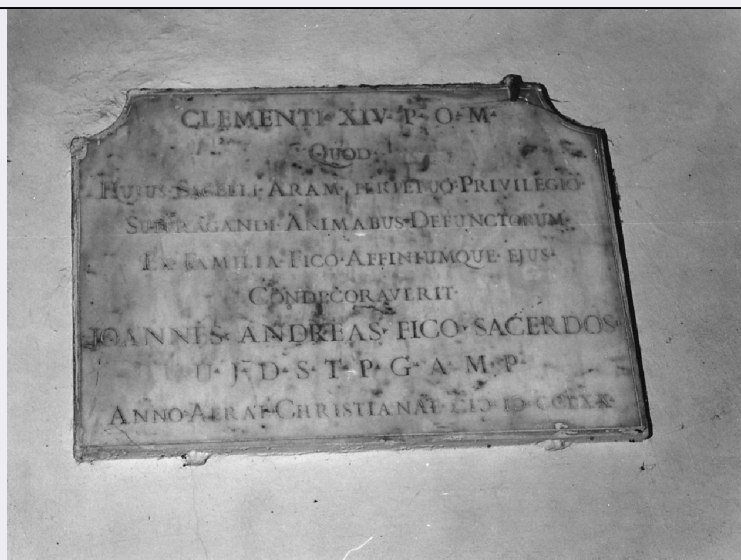 CLEMENTI·XIV·P·O·M·
QUOD
HUJUS·SACELLI·ARAM·PERPETUO·PRIVILEGIO
SUFFRAGANDI·ANIMABUS·DEFUNCTORUM
EX·FAMILIA·FICO·AFFINIUMQUE·EJUS·
CONDECORAVERIT·
JOANNES·ANDREAS·FICO·SACERDOS·
U·J·D·S·T·P·G·A·M·P·
ANNO·AERAE·CHRISTIANAE·CIↃ·IↃ·CCLXX·